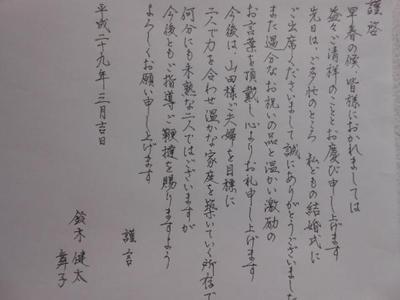 謹啓
早春の候、皆様におかれましては
益々ご清祥のこととお慶び申し上げます
先日は、ご多忙のところ 私どもの結婚式に
ご出席くださいまして誠にありがとうございました
また過分なお祝いの品と温かい激励の
お言葉を頂戴し心よりお礼申し上げます
今後は、山田様ご夫婦を目標に
二人で力を合わせ温かな家庭を築いていく所存で
何分にも未熟な二人ではございますが
今後ともご指導ご鞭撻を賜りますよう
よろしくお願い申し上げます
謹言
平成二十九年三月吉日
鈴木 健太
舞子